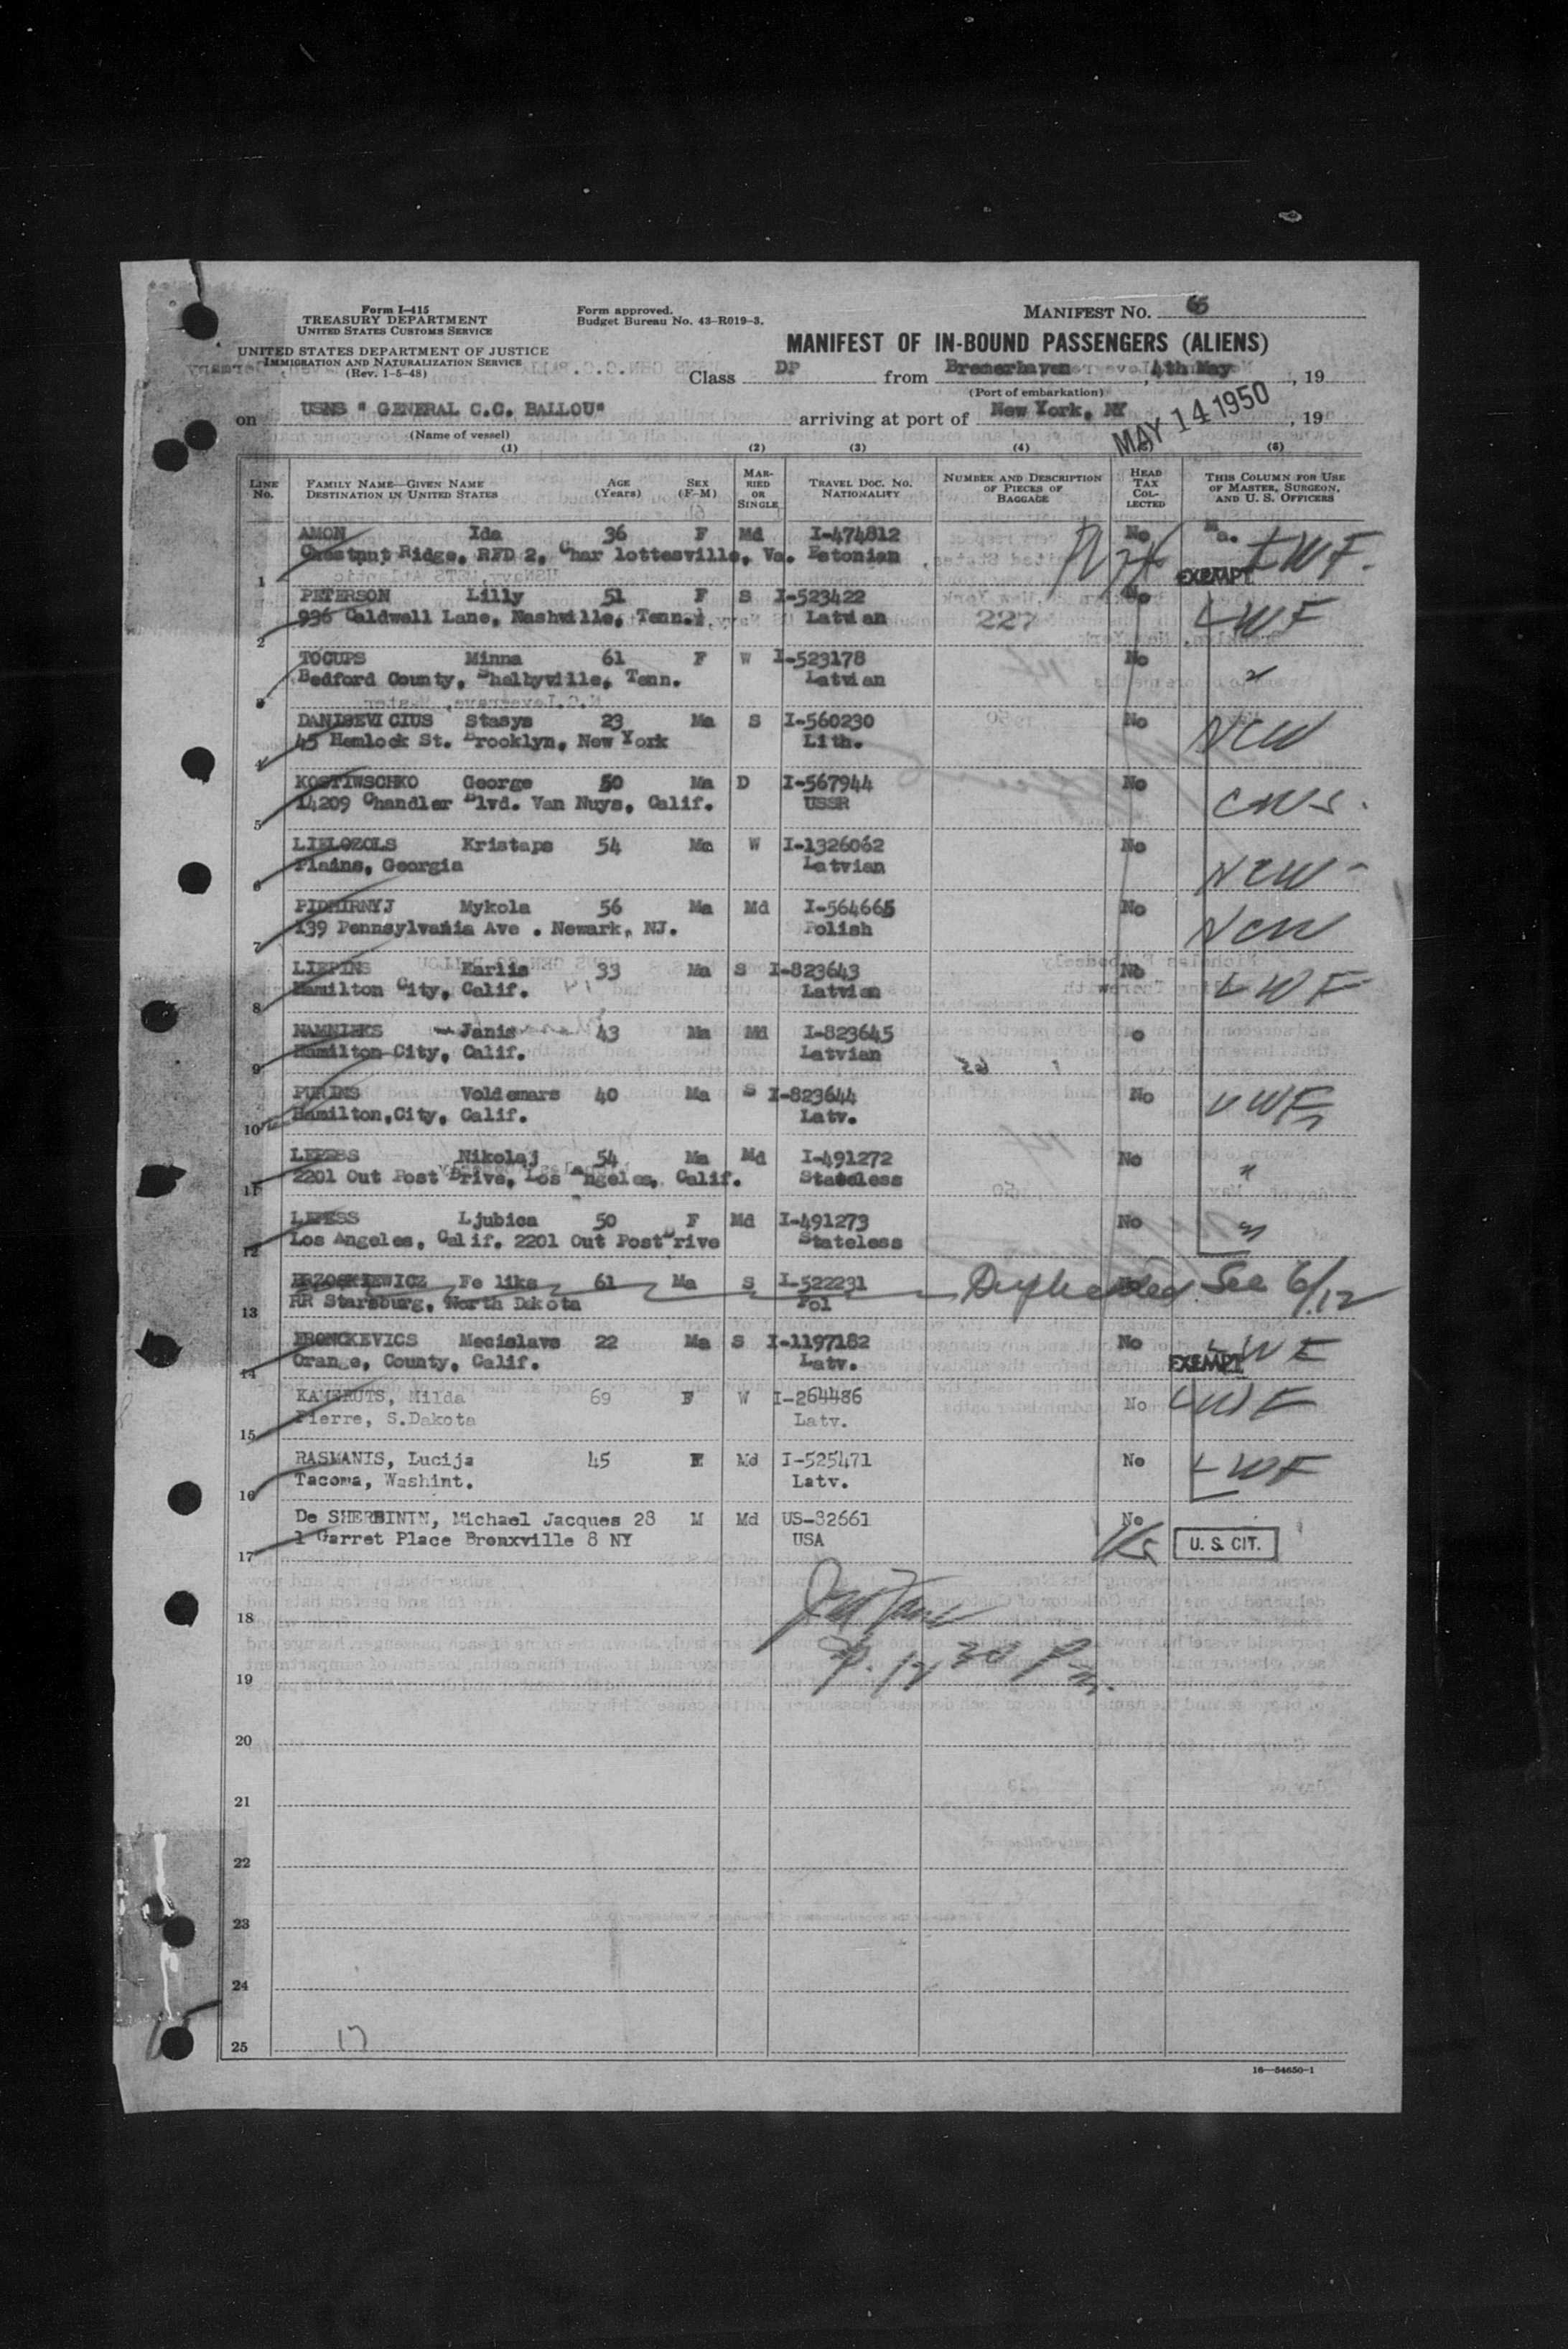 Form I-415
TREASURY DEPARTMENT
UNITED STATES CUSTOMS SERVICE
UNITED STATES DEPARTMENT OF JUSTICE
IMMIGRATION AND NATURALIZATION SERVICE
(Rev. 1-5-48)
Form approved.
Budget Bureau No. 43-R019-3.
MANIFEST NO.
MANIFEST OF IN-BOUND PASSENGERS (ALIENS)
Class DP from Bremerhaven, 4th May, 19
(Port of embarkation)
on USNS " GENERAL C.C. BALLOU" arriving at port of New York, NY MAY 14 1950, 19
(Name of vessel)
(1) (2) (3) (4) (6)
LINE No. FAMILY NAME—GIVEN NAME DESTINATION IN UNITED STATES AGE (Years) SEX (F-M) MARRIED OR SINGLE TRAVEL DOC. NO. NATIONALITY NUMBER AND DESCRIPTION OF PIECES OF BAGGAGE HEAD TAX COLLECTED THIS COLUMN FOR USE OF MASTER, SURGEON, AND U. S. OFFICERS
AMON Ida 36 F Md I-474812 No LWF.
Chestnut Ridge, RFD 2, Charlottesville, Va. Estonian
1 EXEMPT
PETERSON Lilly 51 F S I-523422 No LWF
936 Caldwell Lane, Nashville, Tenn. Latvian 227
2
TOCUPS Minna 61 F W I-523178 No "
Bedford County, Shelbyville, Tenn. Latvian
3
DANISEVICIUS Stasys 23 Ma S I-560230 No NCW
45 Hemlock St. Brooklyn, New York Lith.
4
KOSTIWSCHKO George 50 Ma D I-567944 No CWS.
14209 Chandler Blvd. Van Nuys, Calif. USSR
5
LIELOZOLS Kristaps 54 Ma W I-1326062 No NCW
Plains, Georgia Latvian
6
PIDHIRNYJ Mykola 56 Ma Md I-564665 No NCW
139 Pennsylvania Ave . Newark, NJ. Polish
7
LIEPINS Karlis 33 Ma S I-823643 No LWF
Hamilton City, Calif. Latvian
8
NAMNIEKS Janis 43 Ma Md I-823645 o
Hamilton City, Calif. Latvian
9
PURINS Voldemars 40 Ma S I-823644 No LWF
Hamilton,City, Calif. Latv.
10
LEPESS Nikolaj 54 Ma Md I-491272 No "
2201 Out Post Drive, Los Angeles, Calif. Stateless
11
LEPESS Ljubica 50 F Md I-491273 No "
Los Angeles, Calif. 2201 Out Post Drive Stateless
12
BRZOSKIEWICZ Feliks 61 Ma S I-522231 Duplicated See 6/12
RR Starsburg, North Dakota Pol
13
BRONCKEVICS Mecislavs 22 Ma S I-1197182 No LWF
Orange, County, Calif. Latv. EXEMPT
14
KAMERUTS, Milda 69 F W I-264486 No LWF
Pierre, S.Dakota Latv.
15
RASMANIS, Lucija 45 F Md I-525471 No LWF
Tacoma, Washint. Latv.
16
De SHERBININ, Michael Jacques 28 M Md US-82661 No
1 Garret Place Bronxville 8 NY USA U. S. CIT.
17
18
19
20
21
22
23
24
17
25
16—54650-1